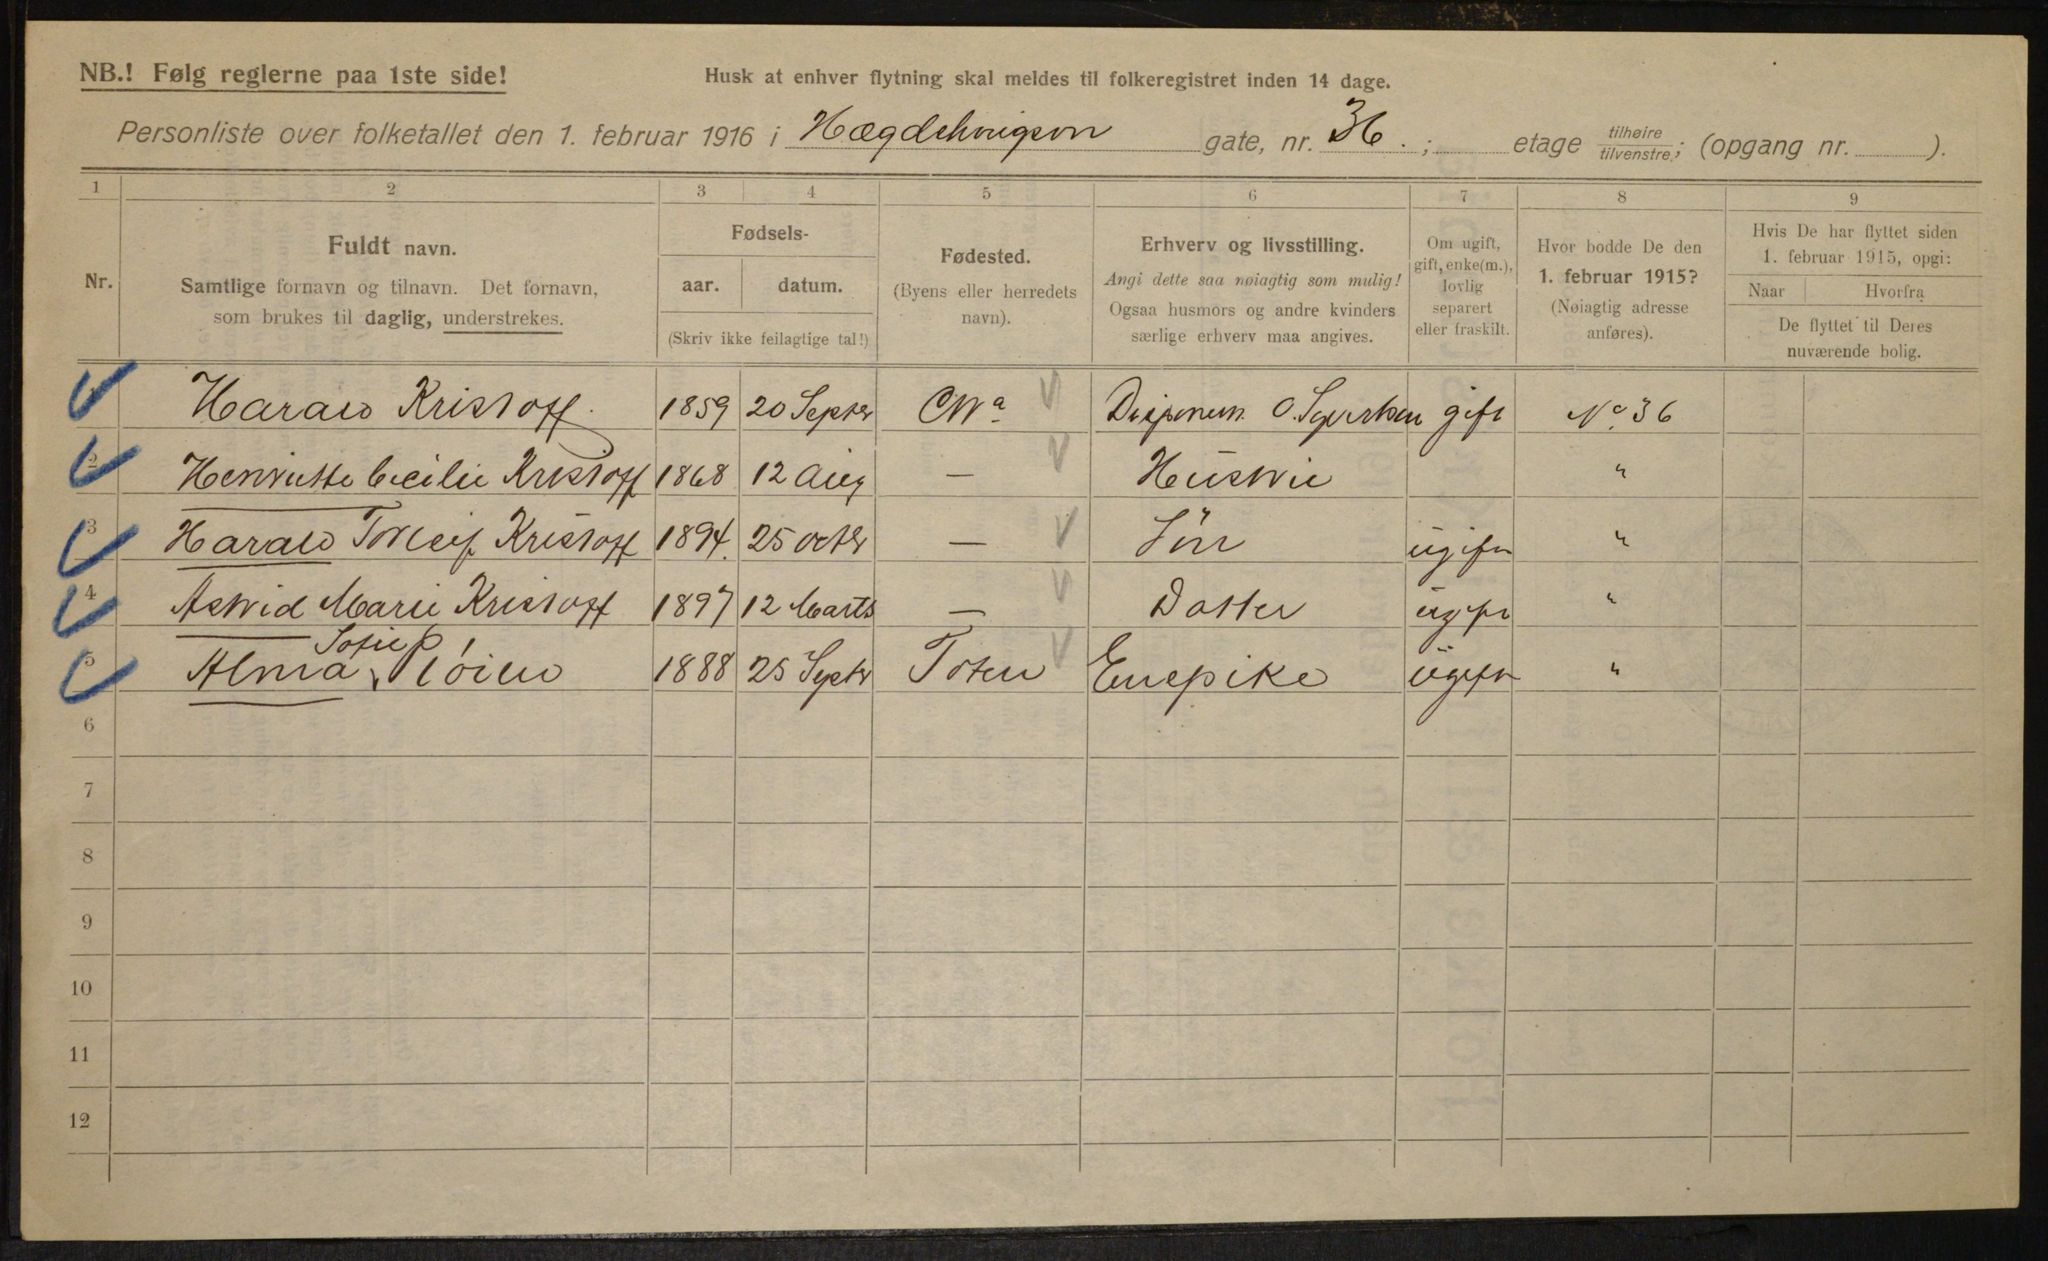 NB.! Følg reglerne paa 1ste side!
Husk at enhver flytning skal meldes til folkeregistret inden 14 dage.
Personliste over folketallet den 1. februar 1916 i gate, nr. 36. ; etage tilhøire / tilvenstre; (opgang nr. ).
1 2 3 4 5 6 7 8 9
Nr.
Fuldt navn.
Samtlige fornavn og tilnavn. Det fornavn,
som brukes til daglig, understrekes.
Fødsels-
aar. datum.
(Skriv ikke feilagtige tal!)
Fødested.
(Byens eller herredets
navn).
Erhverv og livsstilling.
Angi dette saa nøiagtig som mulig!
Ogsaa husmors og andre kvinders
særlige erhverv maa angives.
Om ugift,
gift, enke(m.),
lovlig
separert
eller fraskilt.
Hvor bodde De den
1. februar 1915?
(Nøiagtig adresse
anføres).
Hvis De har flyttet siden
1. februar 1915, opgi:
Naar Hvorfra
De flyttet til Deres
nuværende bolig.
1 Harald Kristoff. 1859 20 Septbr Chra gift No. 36
2 Henriette Cecilie Kristoff 1868 12 Aug — Hüstru "
3 Harald Torleif Kristoff 1894. 25 Octbr — Sön ügift "
4 Astrid Marie Kristoff 1897 12 Marts — Datter ügift "
Sofie
5 Alma 1888 25 Septbr Toten Enepike ügift "
6
7
8
9
10
11
12